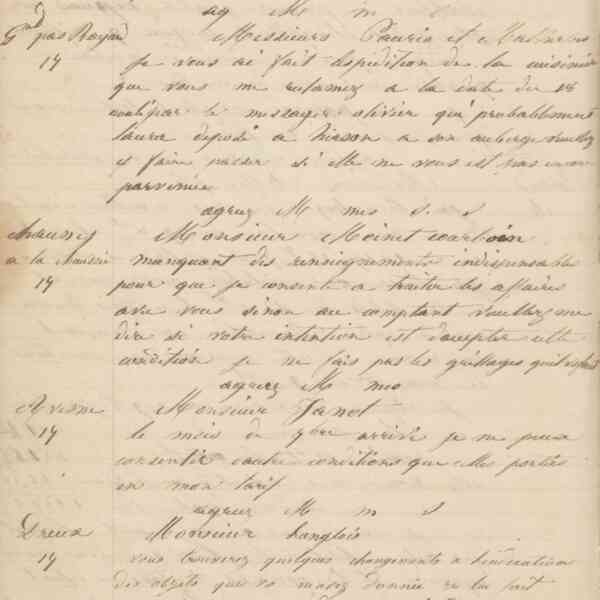 ag M m
Gd pas Bayard Messieurs Pauris et
14 Je vous ai fait l'expedition de la cuisiniere
que vous me reclamez a la date du 18
par le messager olivier qui probablement
laura deposé a hirson a son auberge veuillez
y faire passer si elle ne vous est pas encore
parvenue
agreez M mes s. s
chauny Monsieur Moinet courboin
a la chaussée manquant des renseignements indispensable
14 pour que je consente a traiter les affaires
avec vous sinon au comptant veuillez me
dire si votre intention est daccepter cette
condition je ne fais pas les grillages quil
agreez M mes
Avesne Monsieur Janot
14 le mois de 9bre arrivé je ne peux
consentir dautre conditions que celles portées
en mon tarif
agreez M m s
Dreux Monsieur Langlois
14 vous trouverez quelques changements a
des objets que vs mavez donnée ce la fait